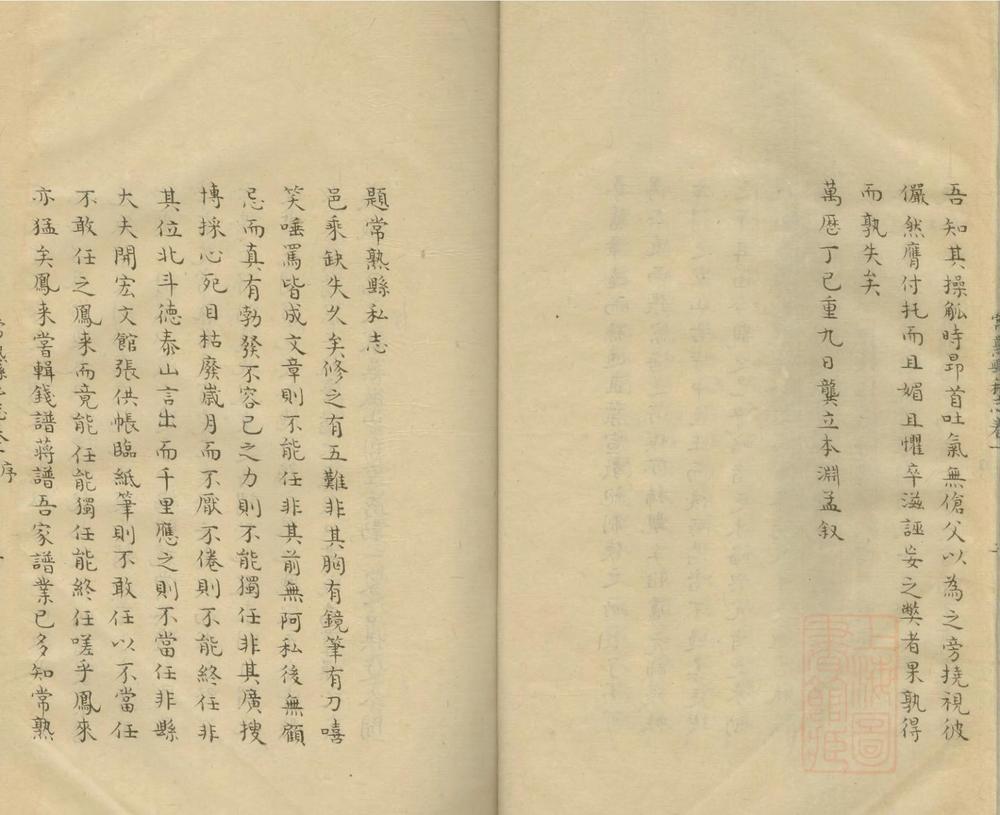 吾知其操觚時昂首吐氣無傖父以為之旁撓視彼
儼然膺付托而且媚且懼卒滋誣妄之獘者果孰得
而孰失矣
萬厯丁已重九日龔立本淵孟叙
題常熟縣私志
邑乘缺失久矣修之有五難非其胸有鏡筆有刀嘻
笑唾罵皆成文章則不能任非其前無阿私後無顧
忌而真有勃發不容已之力則不能獨任非其廣搜
博採心死目枯廢歲月而不厭不倦則不能終任非
其位北斗德泰山言出而千里應之則不當任非縣
大夫開宏文館張供帳臨紙筆則不敢任以不當任
不敢任之鳳来而竟能任能獨任能終任嗟乎鳳來
亦猛矣鳳来嘗輯錢譜蔣譜吾家譜業已多知常熟
序
上海圖書館藏